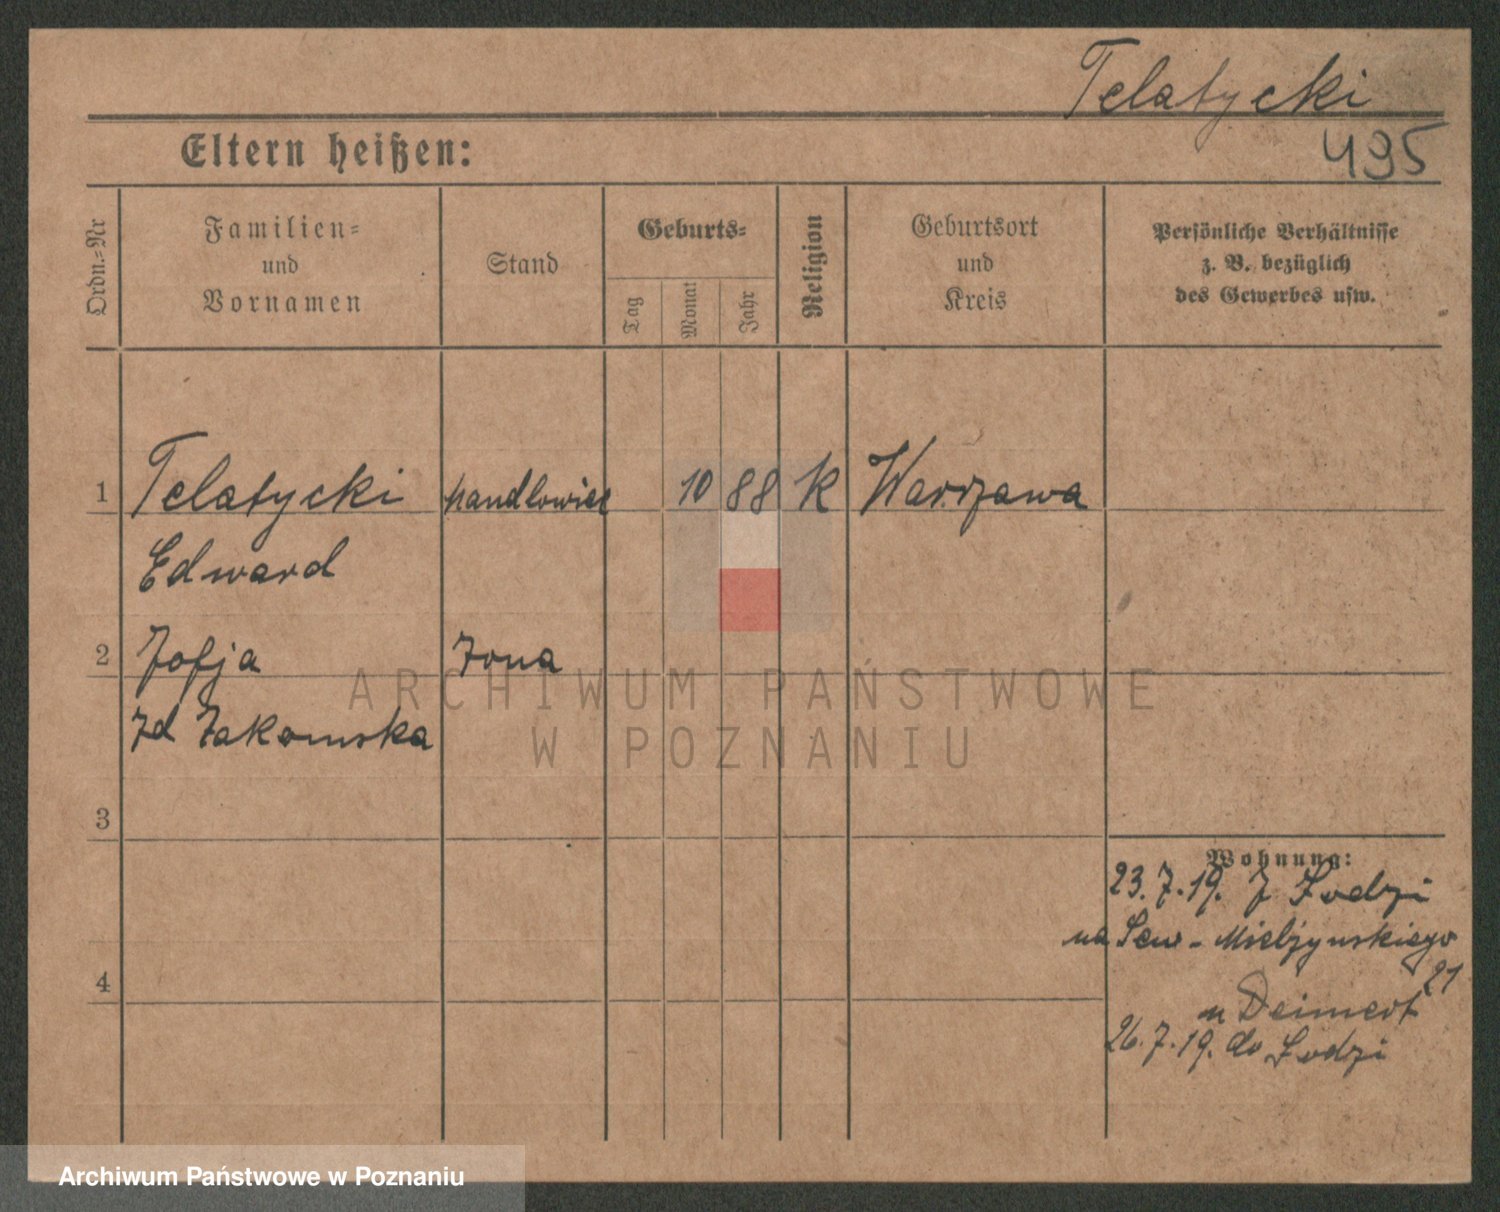 Telatycki
495
Eltern heißen:
Ordn.-Nr
Familien-
und
Vornamen
Stand
Geburts-
Tag
Monat
Jahr
Religion
Geburtsort
und
Kreis
Persönliche Verhältnisse
z. B. bezüglich
des Gewerbes usw.
1 Telatycki handlowiec 10 88 k Warszawa
Edward
2 Zofja żona
zd Żakomska
3
4
Wohnung:
23.7.19. z Łodzi
na Sew-Mielżynskiego
21
u Deimert
26.7.19. do Łodzi
ARCHIWUM PAŃSTWOWE
W POZNANIU
Archiwum Państwowe w Poznaniu